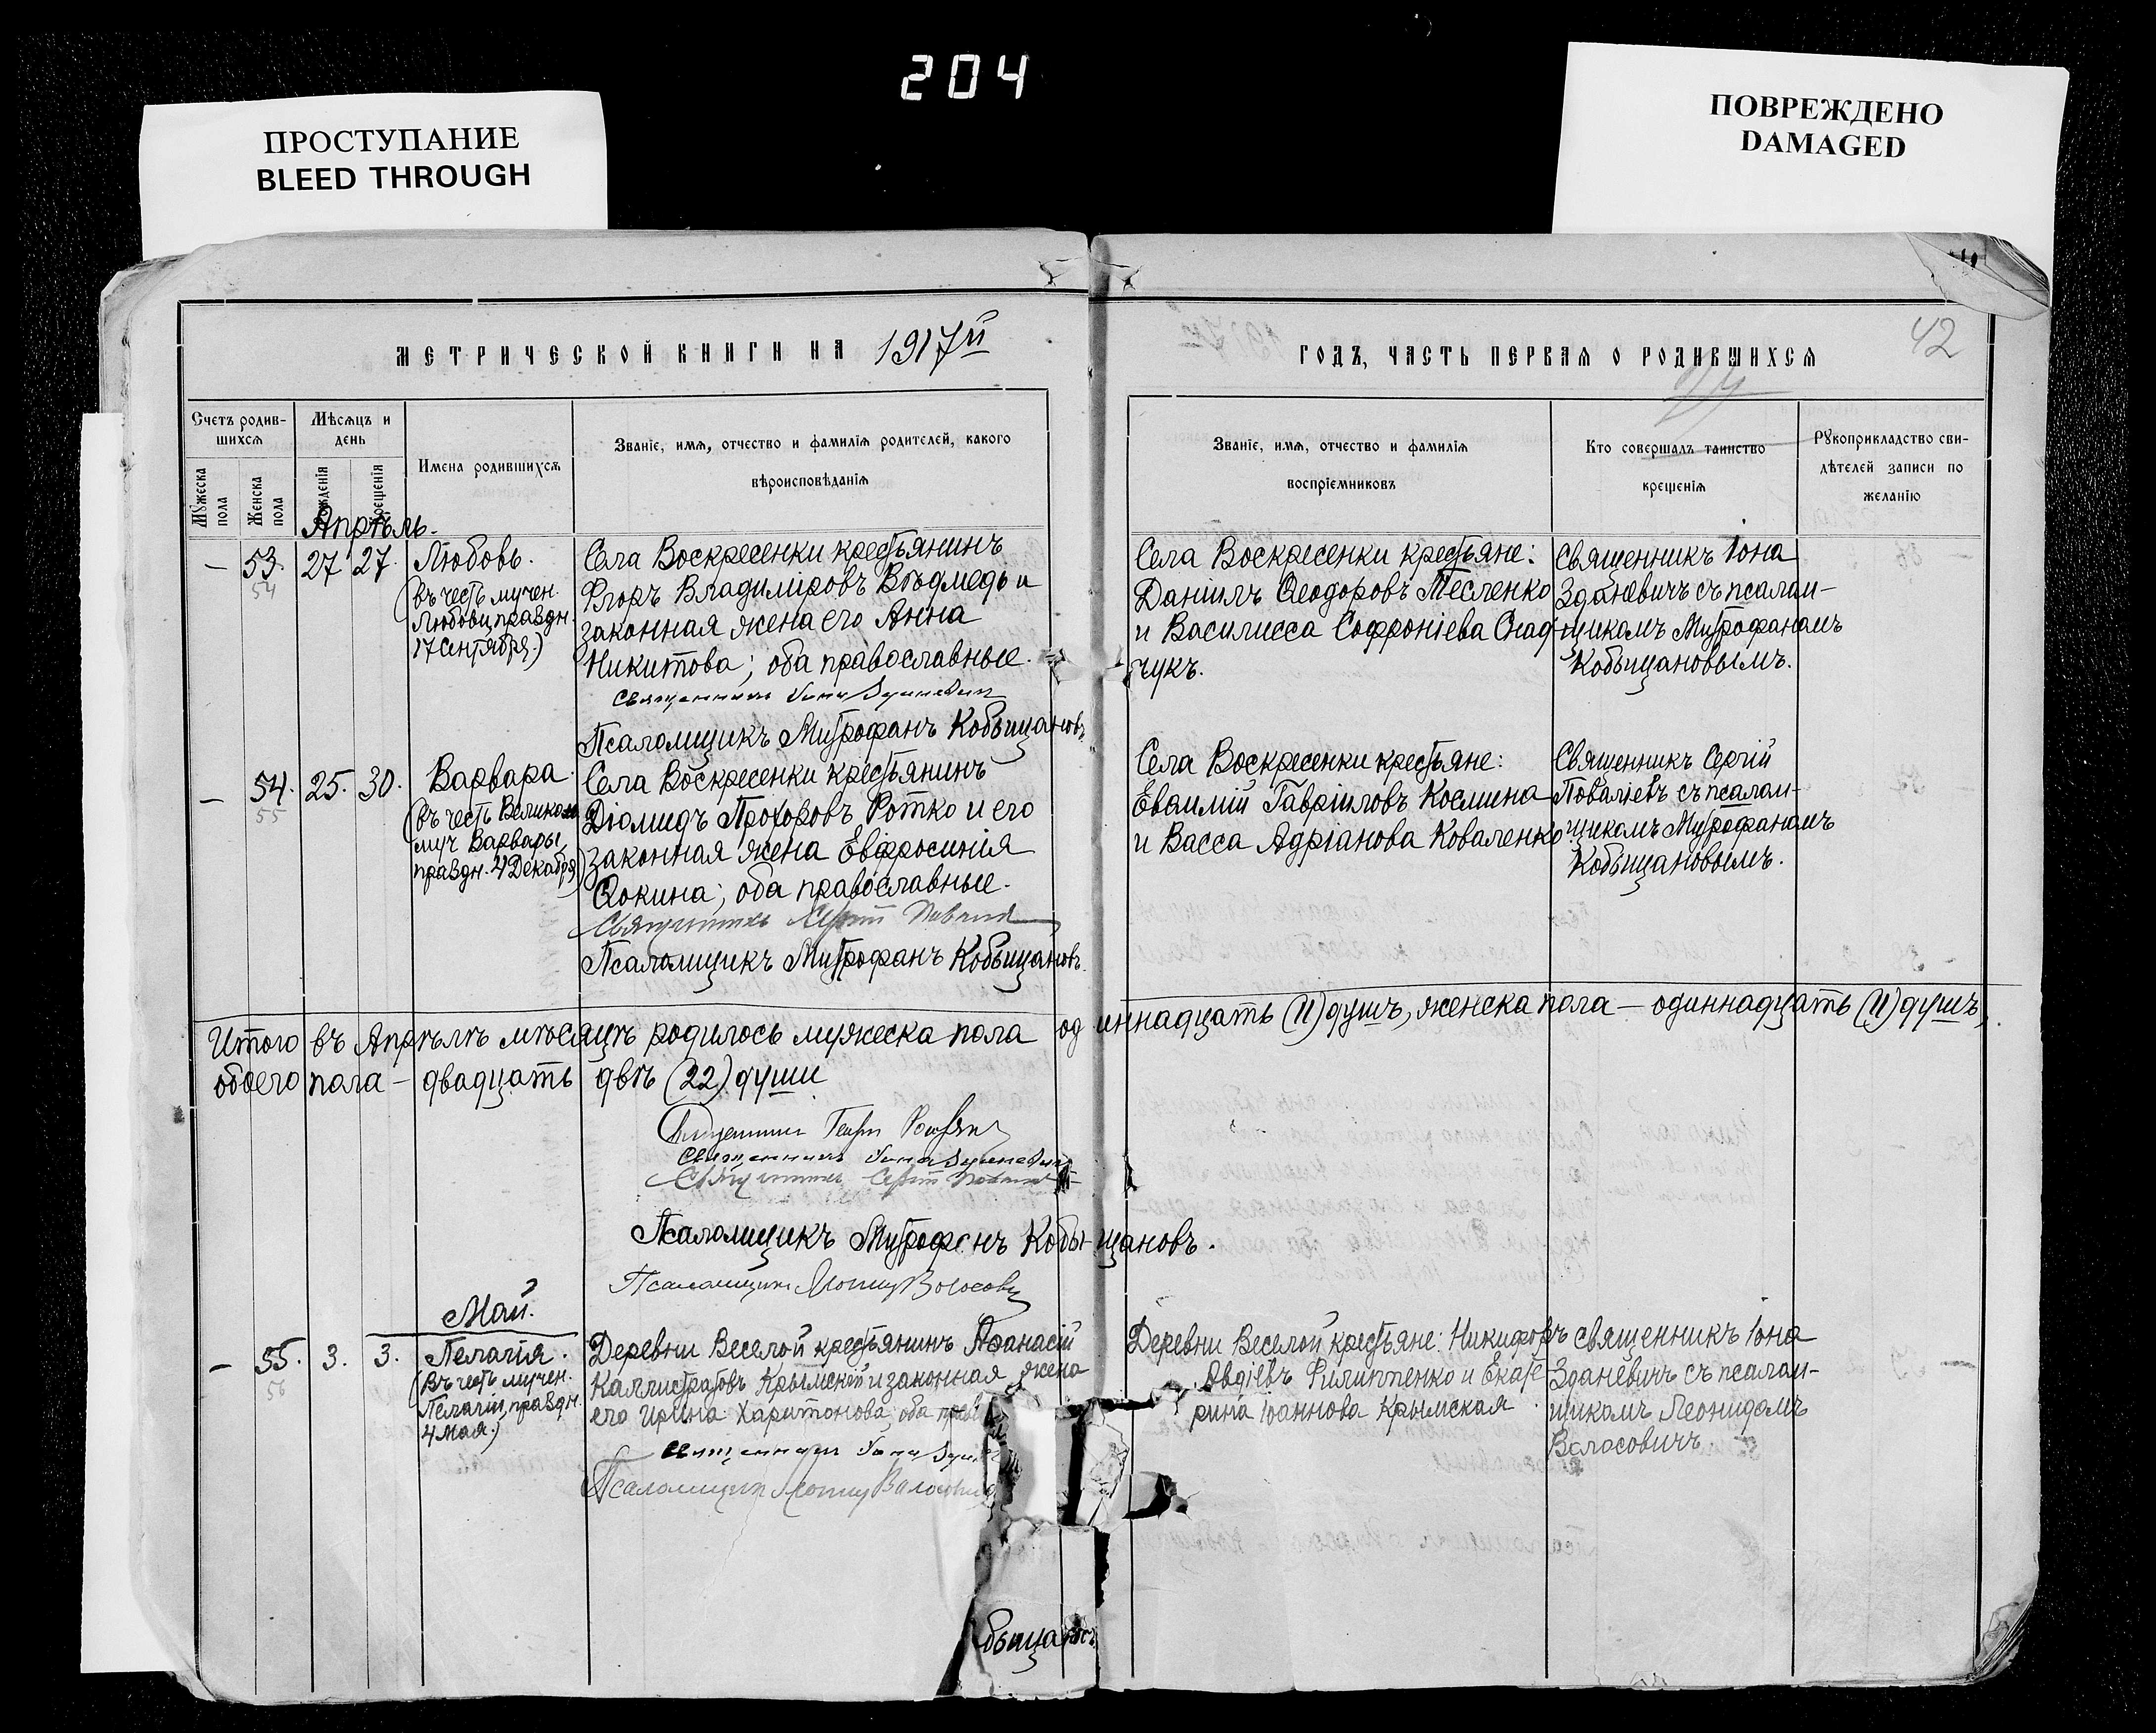 204
ПРОСТУПАНИЕ
BLEED THROUGH
ПОВРЕЖДЕНО
DAMAGED
МЕТРИЧЕСКОЙ КНИГИ НА 1917й
Счетъ родив-
шихся
Мужеска
пола
Женска
пола
Мѣсяцъ и
день
рожденія
крещенія
Имена родившихся
Званіе, имя, отчество и фамилія родителей, какого
вѣроисповѣданія
Апрѣль.
– 53. 27 27.
54
Любовь.
(въ честь мучен.
Любови, праздн.
17 Сентября.)
Села Воскресенки крестьянинъ
Егоръ Владиміровъ Вѣдмедь и
законная жена его Анна
Никитова; оба православные.
Священникъ Іона Зданевичъ
Псаломщикъ Митрофанъ Кобыщановъ
– 54. 25. 30.
55
Варвара.
(въ честь Великом
муч Варвары,
праздн. 4 Декабря)
Села Воскресенки крестьянинъ
Діомидъ Прохоровъ Ротко и его
законная жена Евфросинія
Ѳокина; оба православные.
Священникъ Сергій
Псаломщикъ Митрофанъ Кобыщановъ.
Итого въ Апрѣлѣ мѣсяцѣ родилось мужеска пола
обоего пола – двадцать двѣ (22) души.
Священникъ
Священникъ Іона Зданевичъ
Священникъ Сергій
Псаломщикъ Митрофанъ Кобыщановъ.
Псаломщикъ
Май.
– 55. 3. 3.
56
Пелагія.
(въ честь мучен.
Пелагіи, праздн.
4 мая.)
Деревни Веселой крестьянинъ Аѳанасій
Каллистратовъ Крымскій и законная жена
его Ирина Харитонова; оба
Священникъ Іона
Псаломщикъ
быщановъ
42
ГОДЪ, ЧАСТЬ ПЕРВАЯ О РОДИВШИХСЯ
Званіе, имя, отчество и фамилія
воспріемниковъ
Кто совершалъ таинство
крещенія
Рукоприкладство сви-
дѣтелей записи по
желанію
Села Воскресенки крестьяне:
Даніилъ Ѳеодоровъ Тесленко
и Василисса Софроніева Снад-
чукъ.
Священникъ Іона
Зданевичъ съ псалом-
щикомъ Митрофаномъ
Кобыщановымъ.
Села Воскресенки крестьяне:
Евѳимій Гавріиловъ Космина
и Васса Адріанова Коваленко
Священникъ Сергій
Поваліевъ съ псалом-
щикомъ Митрофаномъ
Кобыщановымъ.
одиннадцать (11) душъ, женска пола – одиннадцать (11) душъ,
Деревни Веселой крестьяне: Никифоръ
Авдіевъ Филиппенко и Екате
рина Іоаннова Крымская
священникъ Іона
Зданевичъ съ псалом-
щикомъ Леонидомъ
Волосовичъ.